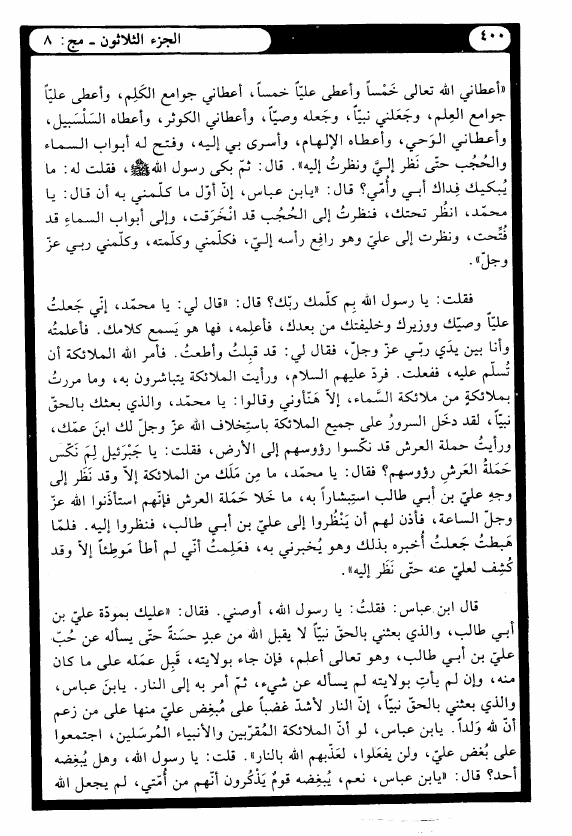 ٤٠٠
الجزء الثلاثون ـ مج: ٨
«أعطاني الله تعالى خَمْساً وأعطى عليّاً خمساً، أعطاني جوامع الكَلِم، وأعطى عليّاً
جوامع العِلم، وجَعَلني نبيّاً، وجَعله وصيّاً، وأعطاني الكوثر، وأعطاه السَلْسَبيل،
وأعـطاني الـوَحي، وأعطاه الإلهام، وأسرى بي إليـه، وفتـح لـه أبواب السماء
والحُجُب حتّى نَظر إليَّ ونظرتُ إليه». قال: ثمّ بكى رسول اللهﷺ، فقلت له: ما
يُبكيك فِداك أبي وأُمّي؟ قال: «يابن عباس، إنّ أوّل ما كلّمني به أن قال: يا
محمّد، انظُر تحتك، فنظرتُ إلى الحُجُب قد انْخَرَقت، وإلى أبواب السماءِ قد
فُتّحت، ونظرت إلى عليّ وهو رافِع رأسه إليّ، فكلّمني وكلّمته، وكلّمني ربي عزّ
وجلّ».
فقلت: يا رسول الله بِم كلّمك ربّك؟ قال: «قال لي: يا محمّد، إنّي جَعلتُ
عليّاً وصيّك ووزيرك وخليفتك من بعدك، فأعلِمه، فها هو يَسمع كلامك. فأعلمتُه
وأنا بين يدَي ربّي عزّ وجلّ، فقال لي: قد قبِلتُ وأطعتُ. فأمر الله الملائكة أن
تُسلّم عليه، ففعلت. فردّ عليهم السلام، ورأيت الملائكة يتباشرون به، وما مررتُ
بملائكةٍ من ملائكة السَّماء، إلاّ هَنّأوني وقالوا: يا محمّد، والذي بعثك بالحقّ
نبيّاً، لقد دخَل السرورُ على جميع الملائكة باستِخلاف الله عزّ وجلّ لك ابنَ عمّك،
ورأيتُ حملة العرش قد نكسوا رؤوسهم إلى الأرض، فقلت: يا جَبْرَئيل لِمَ نَكّس
حَمَلةُ العَرشِ رؤوسهم؟ فقال: يا محمّد، ما مِن مَلَك من الملائكة إلاّ وقد نَظَر إلى
وجهِ عليّ بن أبي طالب استِبشاراً به، ما خَلا حَمَلة العرش فإنّهم استأذَنوا الله عزّ
وجلّ الساعة، فأذن لهم أن يَنْظُروا إلى عليّ بن أبي طالب، فنظروا إليه. فلمّا
هَبطتُ جَعلتُ أُخبره بذلك وهو يُخبرني به، فعَلِمتُ أنّي لم أطأ مَوطِئاً إلاّ وقد
كُشِف لعليّ عنه حتّى نَظَر إليه».
قال ابن عباس: فقلتُ: يا رسول الله، أوصني. فقال: «عليك بمودّة عليّ بن
أبي طالب، والذي بعثني بالحقّ نبيّاً لا يقبل الله من عبدٍ حسَنةً حتّى يسأله عن حُبّ
عليّ بن أبي طالب، وهو تعالى أعلم، فإن جاء بولايته، قَبِل عمَله على ما كان
منه، وإن لم يأتِ بولايته لم يسأله عن شيء، ثمّ أمر به إلى النار. يابنَ عباس،
والذي بعثني بالحقّ نبيّاً، إنّ النار لأشدّ غضباً على مُبغِض عليّ منها على من زعم
أنّ لله وَلداً. يابن عباس، لو أنّ الملائكة المُقرّبين والأنبياء المُرسَلين، اجتمعوا
على بُغض عليّ، ولن يفعَلوا، لعَذّبهم الله بالنار». قلت: يا رسول الله، وهل يُبغِضه
أحد؟ قال: «يابن عباس، نعم، يُبغِضه قومٌ يَذْكُرون أنّهم من أُمّتي، لم يجعل الله